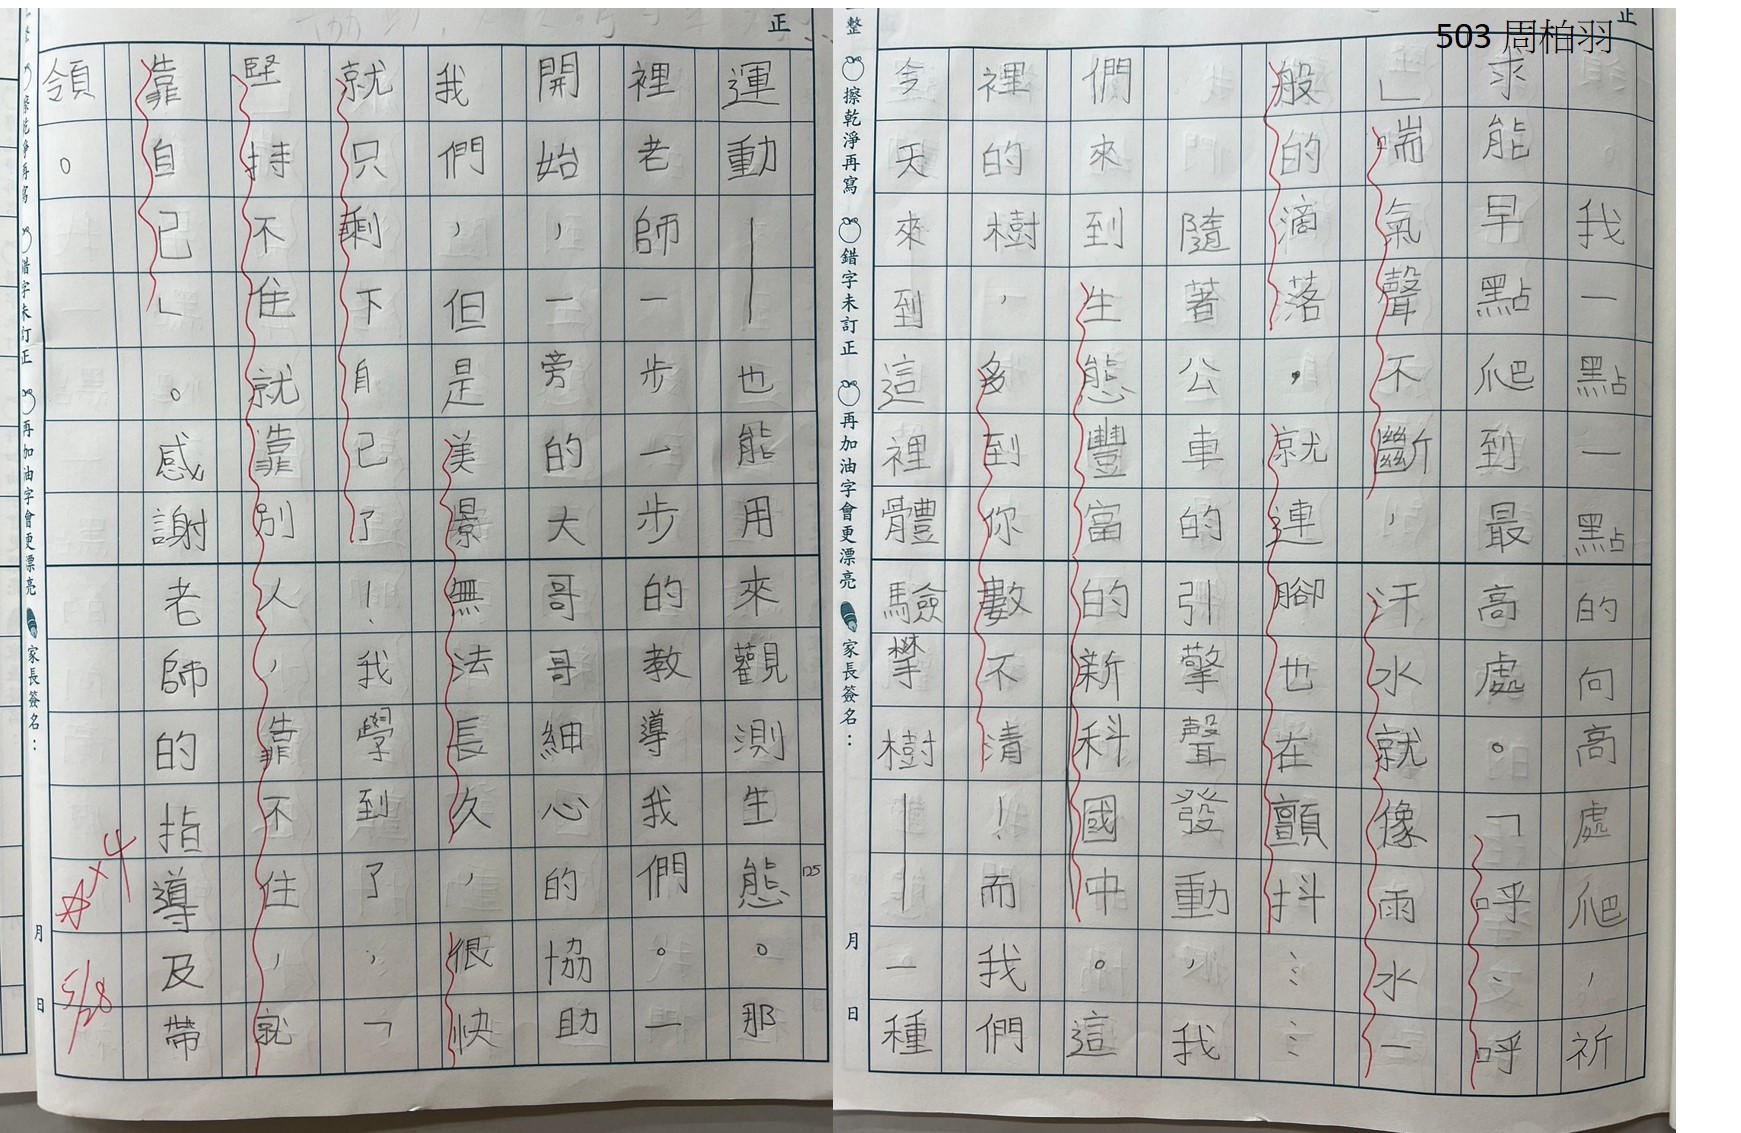 503 周柏羽
我一點一點的向高處爬，祈
求能早點爬到最高處。「呼、呼
」喘氣聲不斷，汗水就像雨水一
般的滴落，就連腳也在顫抖……
隨著公車的引擎聲發動，我
們來到生態豐富的新科國中。這
裡的樹，多到你數不清！而我們
今天來到這裡體驗攀樹——一種
運動——也能用來觀測生態。那
裡老師一步一步的教導我們。一
開始，一旁的大哥哥細心的協助
我們，但是美景無法長久，很快
就只剩下自己了！我學到了：「
堅持不住就靠別人，靠不住，就
靠自己」。感謝老師的指導及帶
領。
125
☆×4
5/28
正
整
擦乾淨再寫
錯字未訂正
再加油字會更漂亮
家長簽名：
月
日
正
擦乾淨再寫
錯字未訂正
再加油字會更漂亮
家長簽名：
月
日